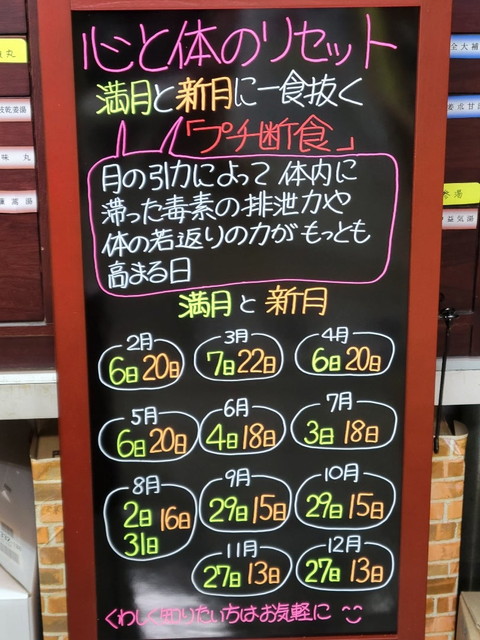 心と体のリセット
満月と新月に一食抜く
「プチ断食」
月の引力によって 体内に
滞った毒素の排泄力や
体の若返りの力が もっとも
高まる日
満月 と 新月
2月
6日 20日
3月
7日 22日
4月
6日 20日
5月
6日 20日
6月
4日 18日
7月
3日 18日
8月
2日 16日
31日
9月
29日 15日
10月
29日 15日
11月
27日 13日
12月
27日 13日
くわしく知りたい方はお気軽に